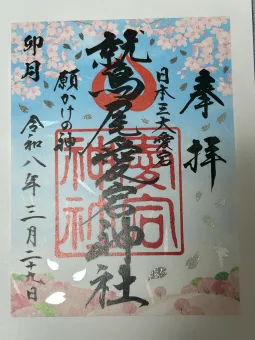 奉拝
日本三大愛宕
鷲尾愛宕神社
願かけの神
卯月
令和八年三月二十九日
愛宕神社